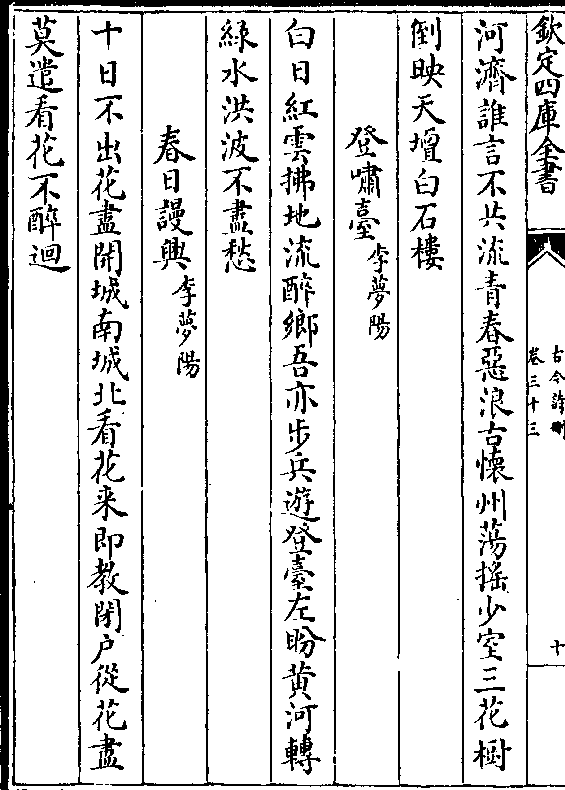 欽定四庫全書
古今詩刪
卷三十三
十
河濟誰言不共流青春惡浪古懷州蕩搖少室三花樹
倒映天壇白石樓
登嘯臺 李夢陽
白日紅雲拂地流醉鄉吾亦步兵遊登臺左盼黄河轉
緑水洪波不盡愁
春日謾興 李夢陽
十日不出花盡開城南城北看花来即教閉户從花盡
莫遣看花不醉迴